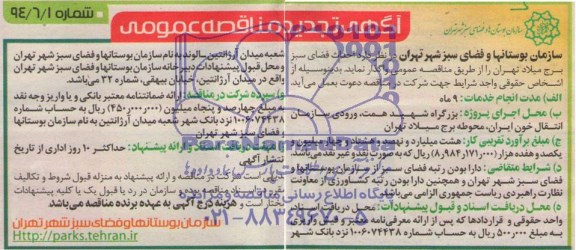 شماره ۹۴/۶/۱
آگهی تجدید مناقصه عمومی
سازمان بوستانها و فضای سبز شهر تهران
سازمان بوستانها و فضای سبز شهر تهران
برج میلاد تهران را از طریق مناقصه عمومی واگذار نماید. بدینوسیله از
اشخاص حقوقی واجد شرایط جهت شرکت در مناقصه دعوت بعمل می آید.
الف) مدت انجام خدمات: ۹ ماه
ب) محل اجرای پروژه: بزرگراه شهید همت، ورودی سازمان
انتقال خون ایران، محوطه برج میلاد تهران
ج) مبلغ برآورد تقریبی کار: هشت میلیارد و نهصد و هشتاد و چهار میلیون و
یکصد و هفده هزار (۸,۹۸۴,۱۷۱,۰۰۰) ریال که به صورت نقد و غیر نقد می باشد.
د) شرایط متقاضی: دارا بودن رتبه فضای سبز از سازمان بوستانها و
فضای سبز شهر تهران و همچنین دارا بودن رتبه کشاورزی از معاونت
نظارت راهبردی ریاست جمهوری الزامی می باشد.
ه) محل دریافت اسناد و قبول پیشنهادات: محل دریافت اسناد
واحد حقوقی و قراردادها که پس از ارائه معرفی نامه معتبر و فیش واریزی
به مبلغ ۵۰۰,۰۰۰ ریال به حساب شماره ۱۰۰۶۰۷۴۴۳۸ نزد بانک شهر
شعبه میدان آرژانتین به نام سازمان بوستانها و فضای سبز شهر تهران
و محل قبول پیشنهادات دبیرخانه سازمان بوستانها و فضای سبز شهر تهران
واقع در میدان آرژانتین، خیابان بیهقی، شماره ۳۲ می باشد.
و) سپرده شرکت در مناقصه: ارائه ضمانتنامه معتبر بانکی و یا واریز وجه نقد
به مبلغ چهارصد و پنجاه میلیون (۴۵۰,۰۰۰,۰۰۰) ریال به حساب شماره
۱۰۰۶۰۷۴۴۳۸ نزد بانک شهر شعبه میدان آرژانتین به نام سازمان بوستانها
و فضای سبز شهر تهران
اسناد و ارائه پیشنهاد: حداکثر ۱۰ روز اداری از تاریخ
انتشار آگهی
و ارائه پیشنهاد به منزله قبول شروط و تکالیف
سازمان در رد یا قبول یک یا کلیه پیشنهادات
مختار است و هزینه درج آگهی به عهده برنده مناقصه می باشد
سازمان بوستانها و فضای سبز شهر تهران
http://parks.tehran.ir
پایگاه اطلاع رسانی مناقصه و مزایده
۰۲۱-۸۸۳۴۹۶۷۰-۵